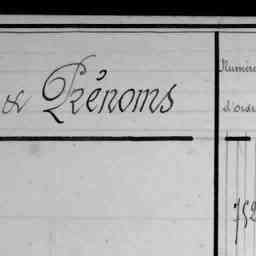 & Prénoms
Numéro
d'ordre
752